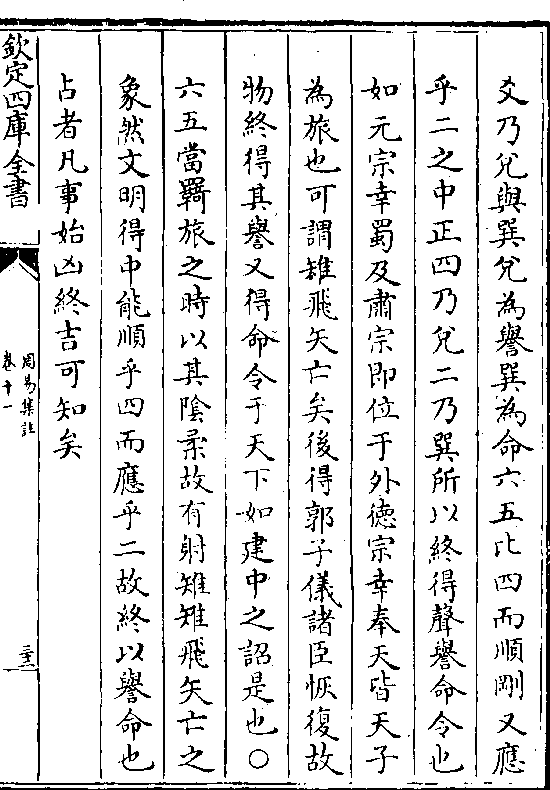 爻乃兌與巽兌為譽巽為命六五比四而順剛又應
乎二之中正四乃兌二乃巽所以終得聲譽命令也
如元宗幸蜀及肅宗即位于外德宗幸奉天皆天子
為旅也可謂雉飛矢亡矣後得郭子儀諸臣恢復故
物終得其譽又得命令于天下如建中之詔是也○
六五當羇旅之時以其陰柔故有射雉雉飛矢亡之
象然文明得中能順乎四而應乎二故終以譽命也
占者凡事始凶終吉可知矣
欽定四庫全書
周易集註
卷十一
三十三